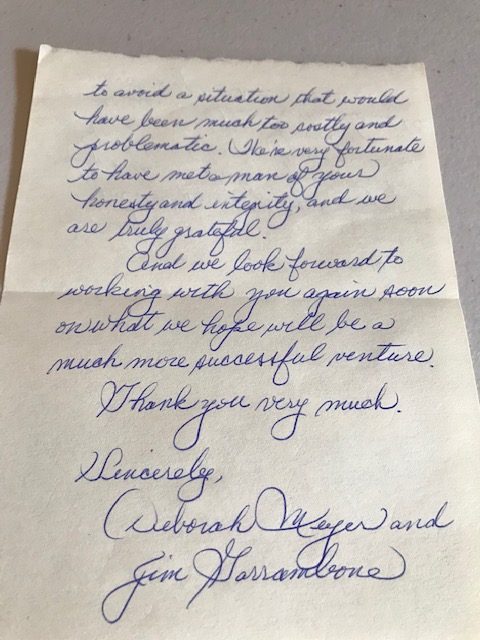 to avoid a situation that would
have been much too costly and
problematic. We're very fortunate
to have met a man of your
honesty and integrity, and we
are truly grateful.
And we look forward to
working with you again soon
on what we hope will be a
much more successful venture.
Thank you very much.
Sincerely,
Deborah Meyer and
Jim Garrambone